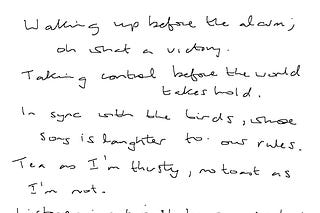 Waking up before the alarm;
oh what a victory.
Taking control before the world
takes hold.
In sync with the birds, whose
song is laughter to our rules.
Tea as I'm thirsty, no toast as
I'm not.